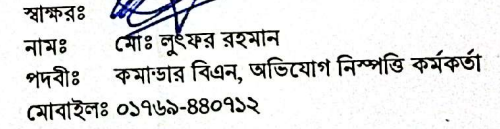 স্বাক্ষরঃ
নামঃ মোঃ লুৎফর রহমান
পদবীঃ কমান্ডার বিএন, অভিযোগ নিষ্পত্তি কর্মকর্তা
মোবাইলঃ ০১৭৬৯-৪৪০৭১২